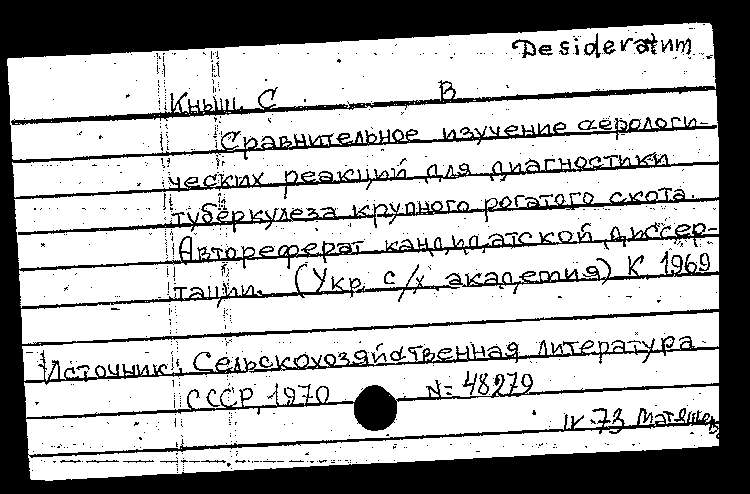 Desideratum
Кныш, С В
Сравнительное изучение аерологи-
ческих реакций для диагностики
туберкулеза крупного рогатого скота.
Автореферат кандидатской диссер-
тации. (Укр. с/х. академия) К. 1969
Источник: Сельскохозяйственная литература
СССР, 1970 N= 48279
IV-73